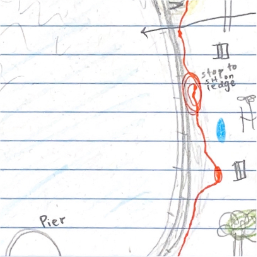 stop to
sit on
ledge
Pier